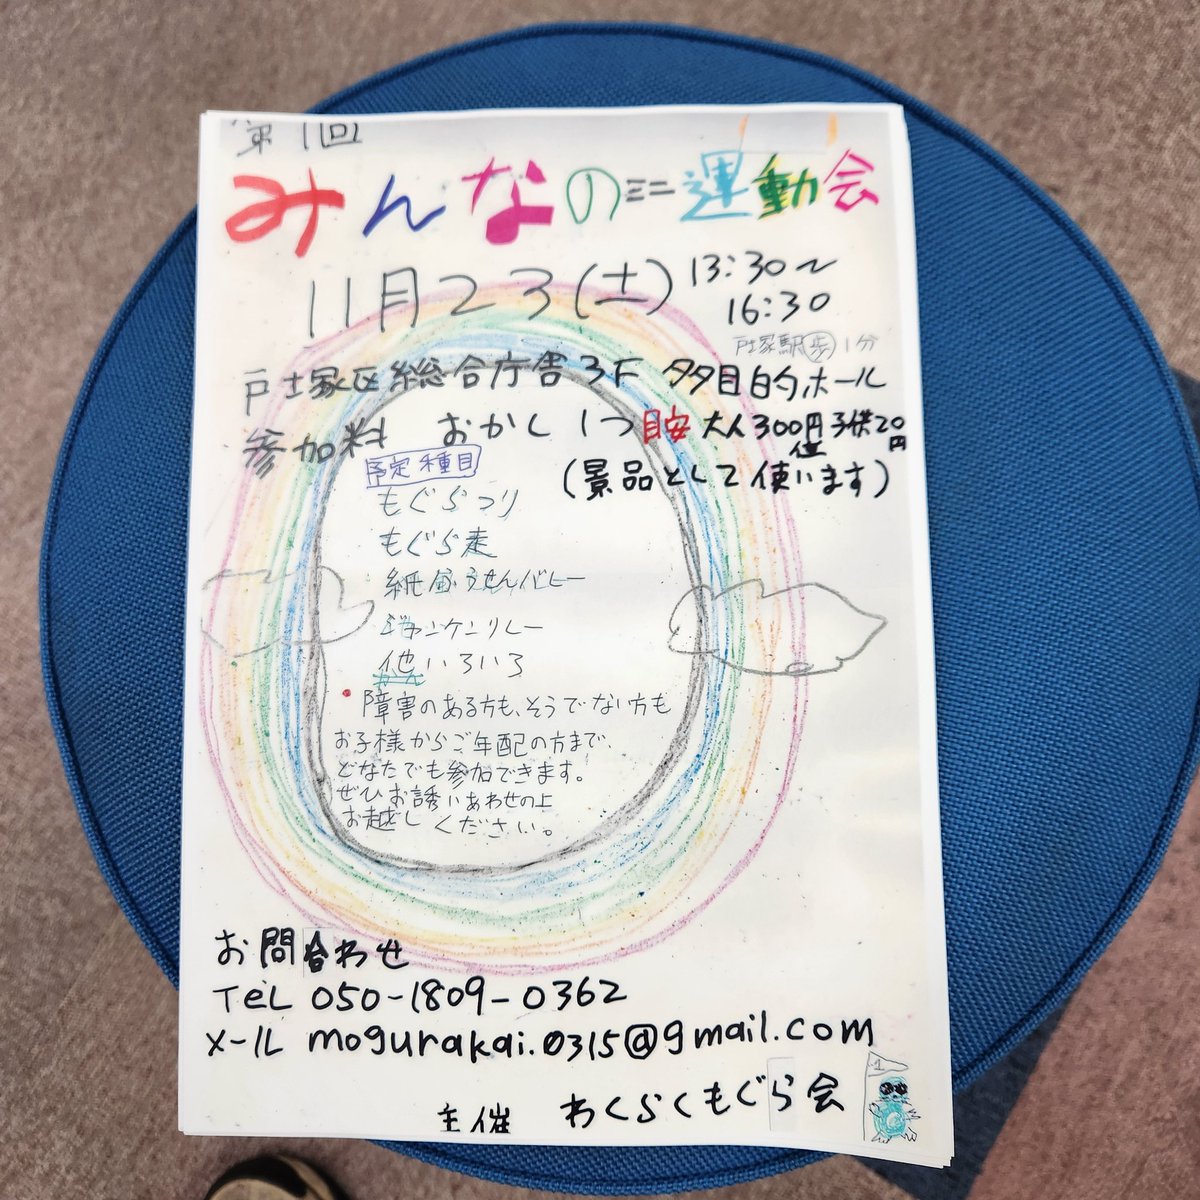 第1回
みんなのミニ運動会
11月23(土) 13:30〜
16:30
戸塚駅歩1分
戸塚区総合庁舎3F 多目的ホール
参加料 おかし1つ目安 大人300円位 子供20円
(景品として使います)
予定種目
もぐらつり
もぐら走
紙ふうせんバレー
ジャンケンリレー
他いろいろ
・障害のある方も、そうでない方も
お子様からご年配の方まで、
どなたでも参加できます。
ぜひお誘いあわせの上
お越しください。
お問合わせ
TEL 050-1809-0362
メール mogurakai.0315@gmail.com
主催 わくらくもぐら会